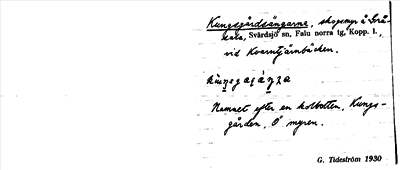 Kungsgårdsängarna, skogsmyr å Grå-
kala, Svärdsjö sn, Falu norra tg, Kopp. l.,
vid Kvarntjärnbäcken.
Namnet efter en kolbotten, Kungs-
gården, Ö myren.
G. Tideström 1930